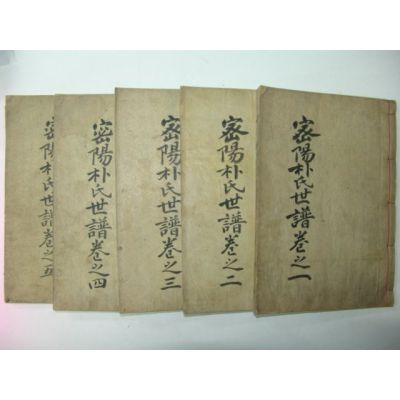 密陽朴氏世譜卷之一
密陽朴氏世譜卷之二
密陽朴氏世譜卷之三
密陽朴氏世譜卷之四
密陽朴氏世譜卷之五